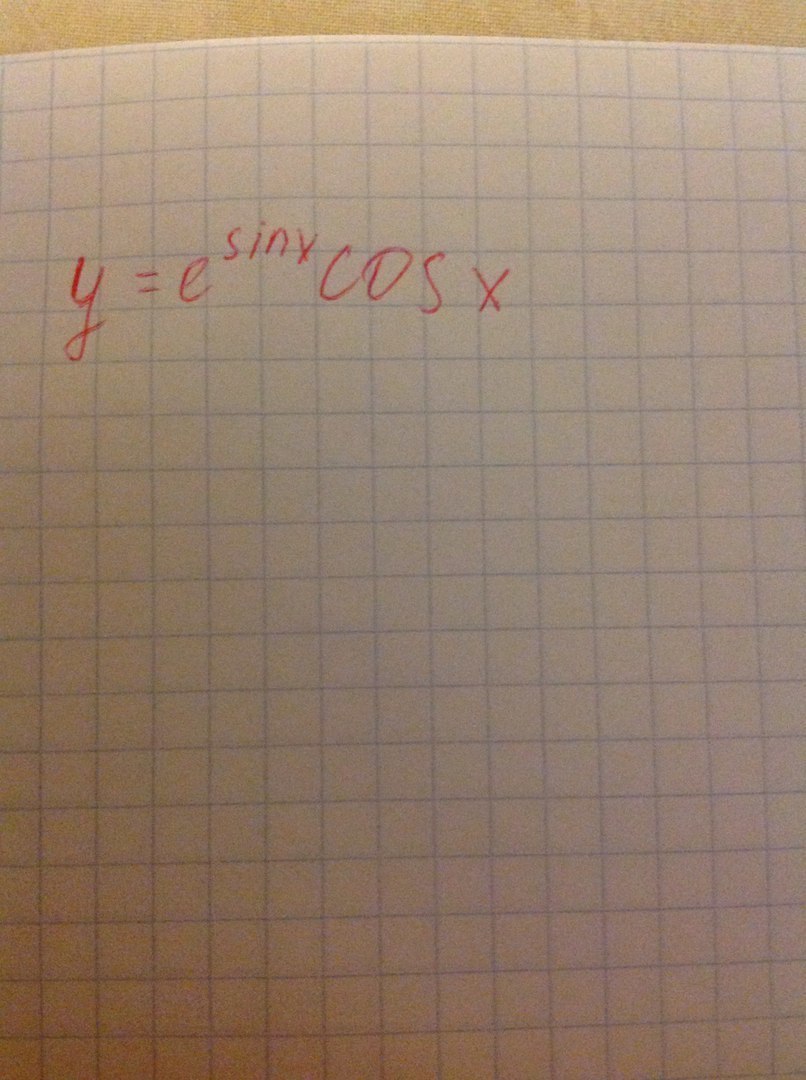 y = e^{sinx} cos x